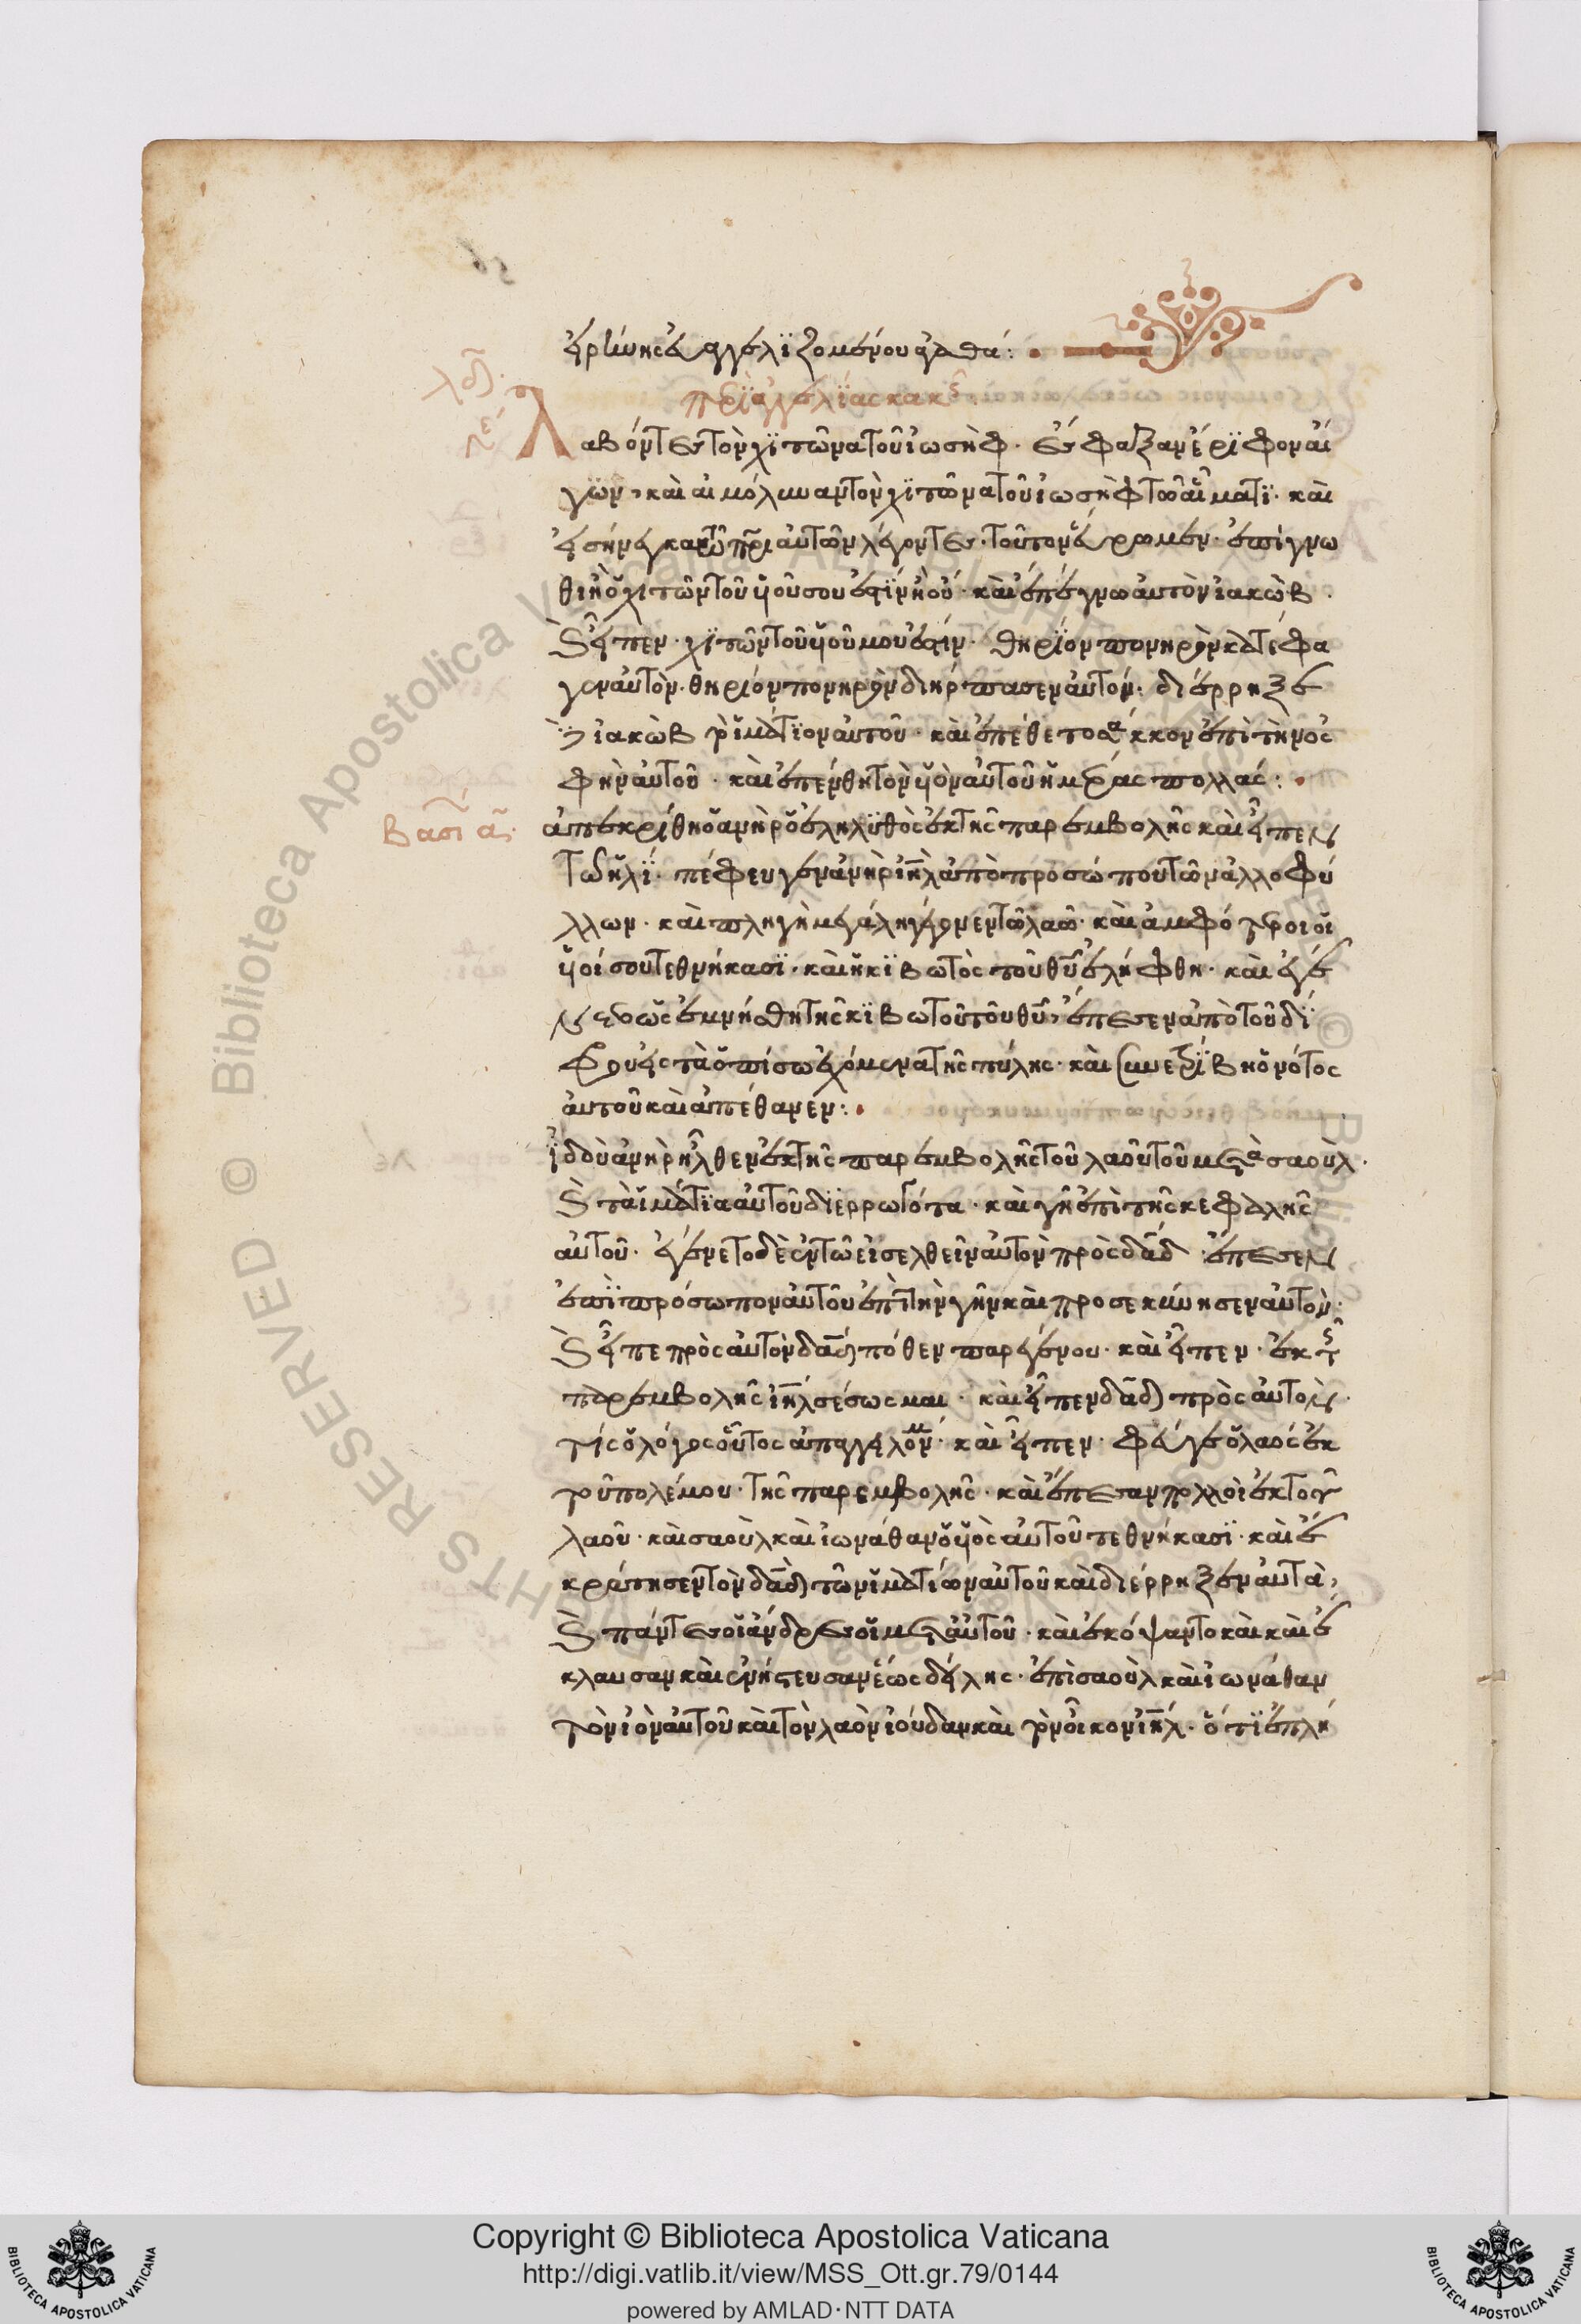 εἰρήνης εὐαγγελϊζομένου ἀγαθά:
περὶ ἀγγελΐας κακῆς
Λαβόντες τὸν χϊτῶνα τοῦ ἰωσὴφ. ἔσφαξαν ἔρϊφον αἰ
γῶν, καὶ ἐμόλυναν τὸν χϊτῶνα τοῦ ἰωσὴφ τῶ αἵματϊ. καὶ
εἰσήνεγκαν τῶ πρὶ αὐτῶν λέγοντες. τοῦτον εὕρομεν. ἐπίγνω
θι εἰ ὁ χιτῶν τοῦ υἱοῦ σου ἐστΐν ἢ οὐ. καὶ ἐπέγνω αὐτὸν ἰακὼβ.
καὶ εἶπεν. χϊτῶν τοῦ υἱοῦ μου ἐστΐν. θηρΐον πονηρὸν κατέφα
γεν αὐτὸν. θηρίον πονηρὸν διήρπασεν αὐτόν. διέρρηξε
δὲ ἰακὼβ τὸ ἱμάτϊον αὐτοῦ. καὶ ἐπέθετο σάκκον ἐπὶ τὴν ὀσ
φὴν αὐτοῦ. καὶ ἐπένθη τὸν υἱὸν αὐτοῦ ἡμέρας πολλάς:
Βασι α
ἀπεκρίθη ὁ ἀνὴρ ὁ ἐληλϋθὸς ἐκ τῆς παρεμβολῆς καὶ εἶπεν
τῶ ἡλΐ. πέφευγεν ἀνὴρ ἰηλ ἀπὸ προσώπου τῶν ἀλλοφύ
λλων. καὶ πληγὴ μεγάλη γέγονεν τῶ λαῶ. καὶ ἀμφότεροι οἱ
υἱοί σου τεθνήκασϊ. καὶ ἡ κϊβωτὸς τοῦ θυ ἐλήφθη. καὶ ἐγέ
νετο ὡς ἐμνήσθη τῆς κϊβωτοῦ τοῦ θυ, ἔπεσεν ἀπὸ τοῦ δΐ
φρου εἰς τὰ ὀπίσω ἐχόμενα τῆς πύλης. καὶ συνετρΐβη ὁ νότος
αὐτοῦ καὶ ἀπέθανέν:
ἰδοὺ ἀνὴρ ἦλθεν ἐκ τῆς παρεμβολῆς τοῦ λαοῦ τοῦ μετὰ σαοὺλ.
καὶ τὰ ἱμάτϊα αὐτοῦ διερρωγότα. καὶ γῆ ἐπὶ τῆς κεφαλῆς
αὐτοῦ. ἐγένετο δὲ ἐν τῶ εἰσελθεῖν αὐτὸν πρὸς δαδ ἔπεσεν
ἐπῒ πρόσωπον αὐτοῦ ἐπὶ τὴν γῆν καὶ προσεκύνησεν αὐτὸν.
καὶ εἶπε πρὸς αὐτὸν δαδ πόθεν παρεγένου. καὶ εἶπεν. ἐκ τῆς
παρεμβολῆς ἰηλ σέσωσμαι. καὶ εἶπεν δαδ πρὸς αὐτὸν.
τίς ὁ λόγος οὗτος ἀπάγγειλόν μοι. καὶ εἶπεν. φεύγε ὁ λαὸς ἐκ
τοῦ πολέμου. τῆς παρεμβολῆς. καὶ ἔπεσαν πολλοὶ ἐκ τοῦ
λαοῦ. καὶ σαοὺλ καὶ ἰωνάθαν ὁ υἱὸς αὐτοῦ τεθνήκασϊ. καὶ ἐ
κράτησεν τὸν δαδ τῶν ἱματίων αὐτοῦ καὶ διέρρηξεν αὐτὰ,
καὶ πάντες οἱ ἄνδρες οἱ μετ' αὐτοῦ. καὶ ἐκόψαντο καὶ καὶ ἔ
κλαυσαν καὶ ἐνήστευσαν ἕως δείλης. ἐπὶ σαοὺλ καὶ ἰωνάθαν
τὸν ἱὸν αὐτοῦ καὶ τὸν λαὸν ἰούδαν καὶ τὸν οἶκον ἰηλ. ὅτϊ ἐπλή
Copyright © Biblioteca Apostolica Vaticana
http://digi.vatlib.it/view/MSS_Ott.gr.79/0144
powered by AMLAD·NTT DATA